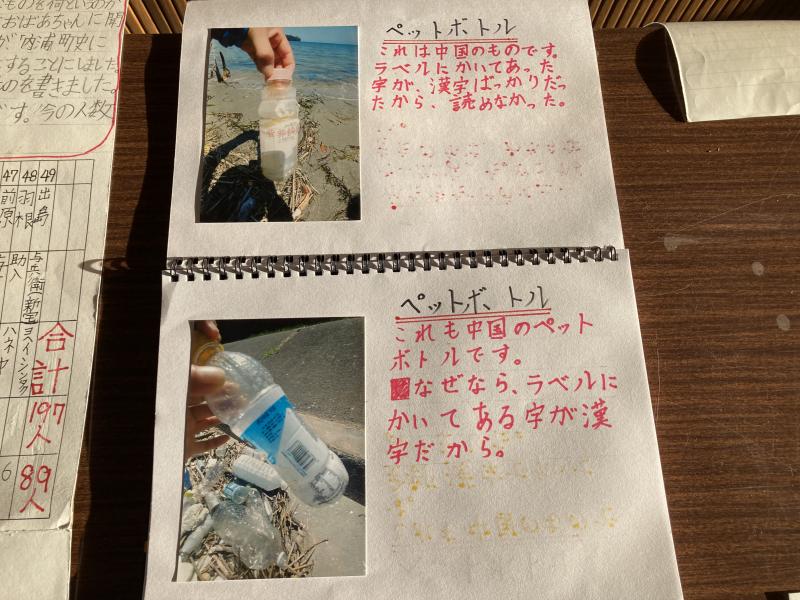 ペットボトル
これは中国のものです。
ラベルにかいてあった
字が、漢字ばっかりだっ
たから、読めなかった。
ペットボトル
これも中国のペット
ボトルです。
なぜなら、ラベルに
かいてある字が漢
字だから。
おばあちゃんに聞
することにしました。
のを書きました。
です。今の人数
47 48 49
前原
羽根
出島
助入
与兵衛新宅
ヨヘイシンタク
合計
197人
89人